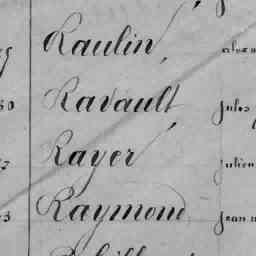 Raulin
Ravault Jules
Rayer Julien
Raymond Jean